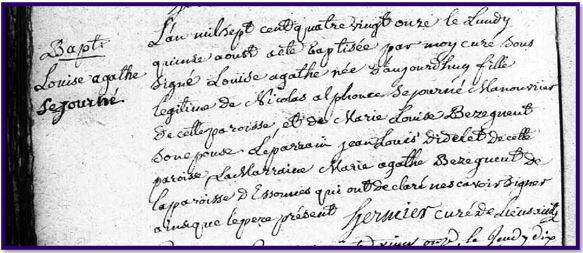 Bapt.
Louise agathe
Sejourné
L'an mil sept cent quatre vingt onze le Lundy
quinze aoust a été baptisée par moy curé sous
signé Louise agathe née d'aujourdhuy fille
légitime de Nicolas alphonce Sejourné Manouvrier
de cette paroisse, et de Marie Louise Bezeguent
son epouse Le parrain jean Louis Didelet de cette
paroisse La Marraine Marie agathe Bezeguent de
la paroisse d'Essonnes qui ont declaré ne scavoir signer
ainsi que le pere présent Hernier curé de Lieusaint
vingt onze, le Jeudy dix